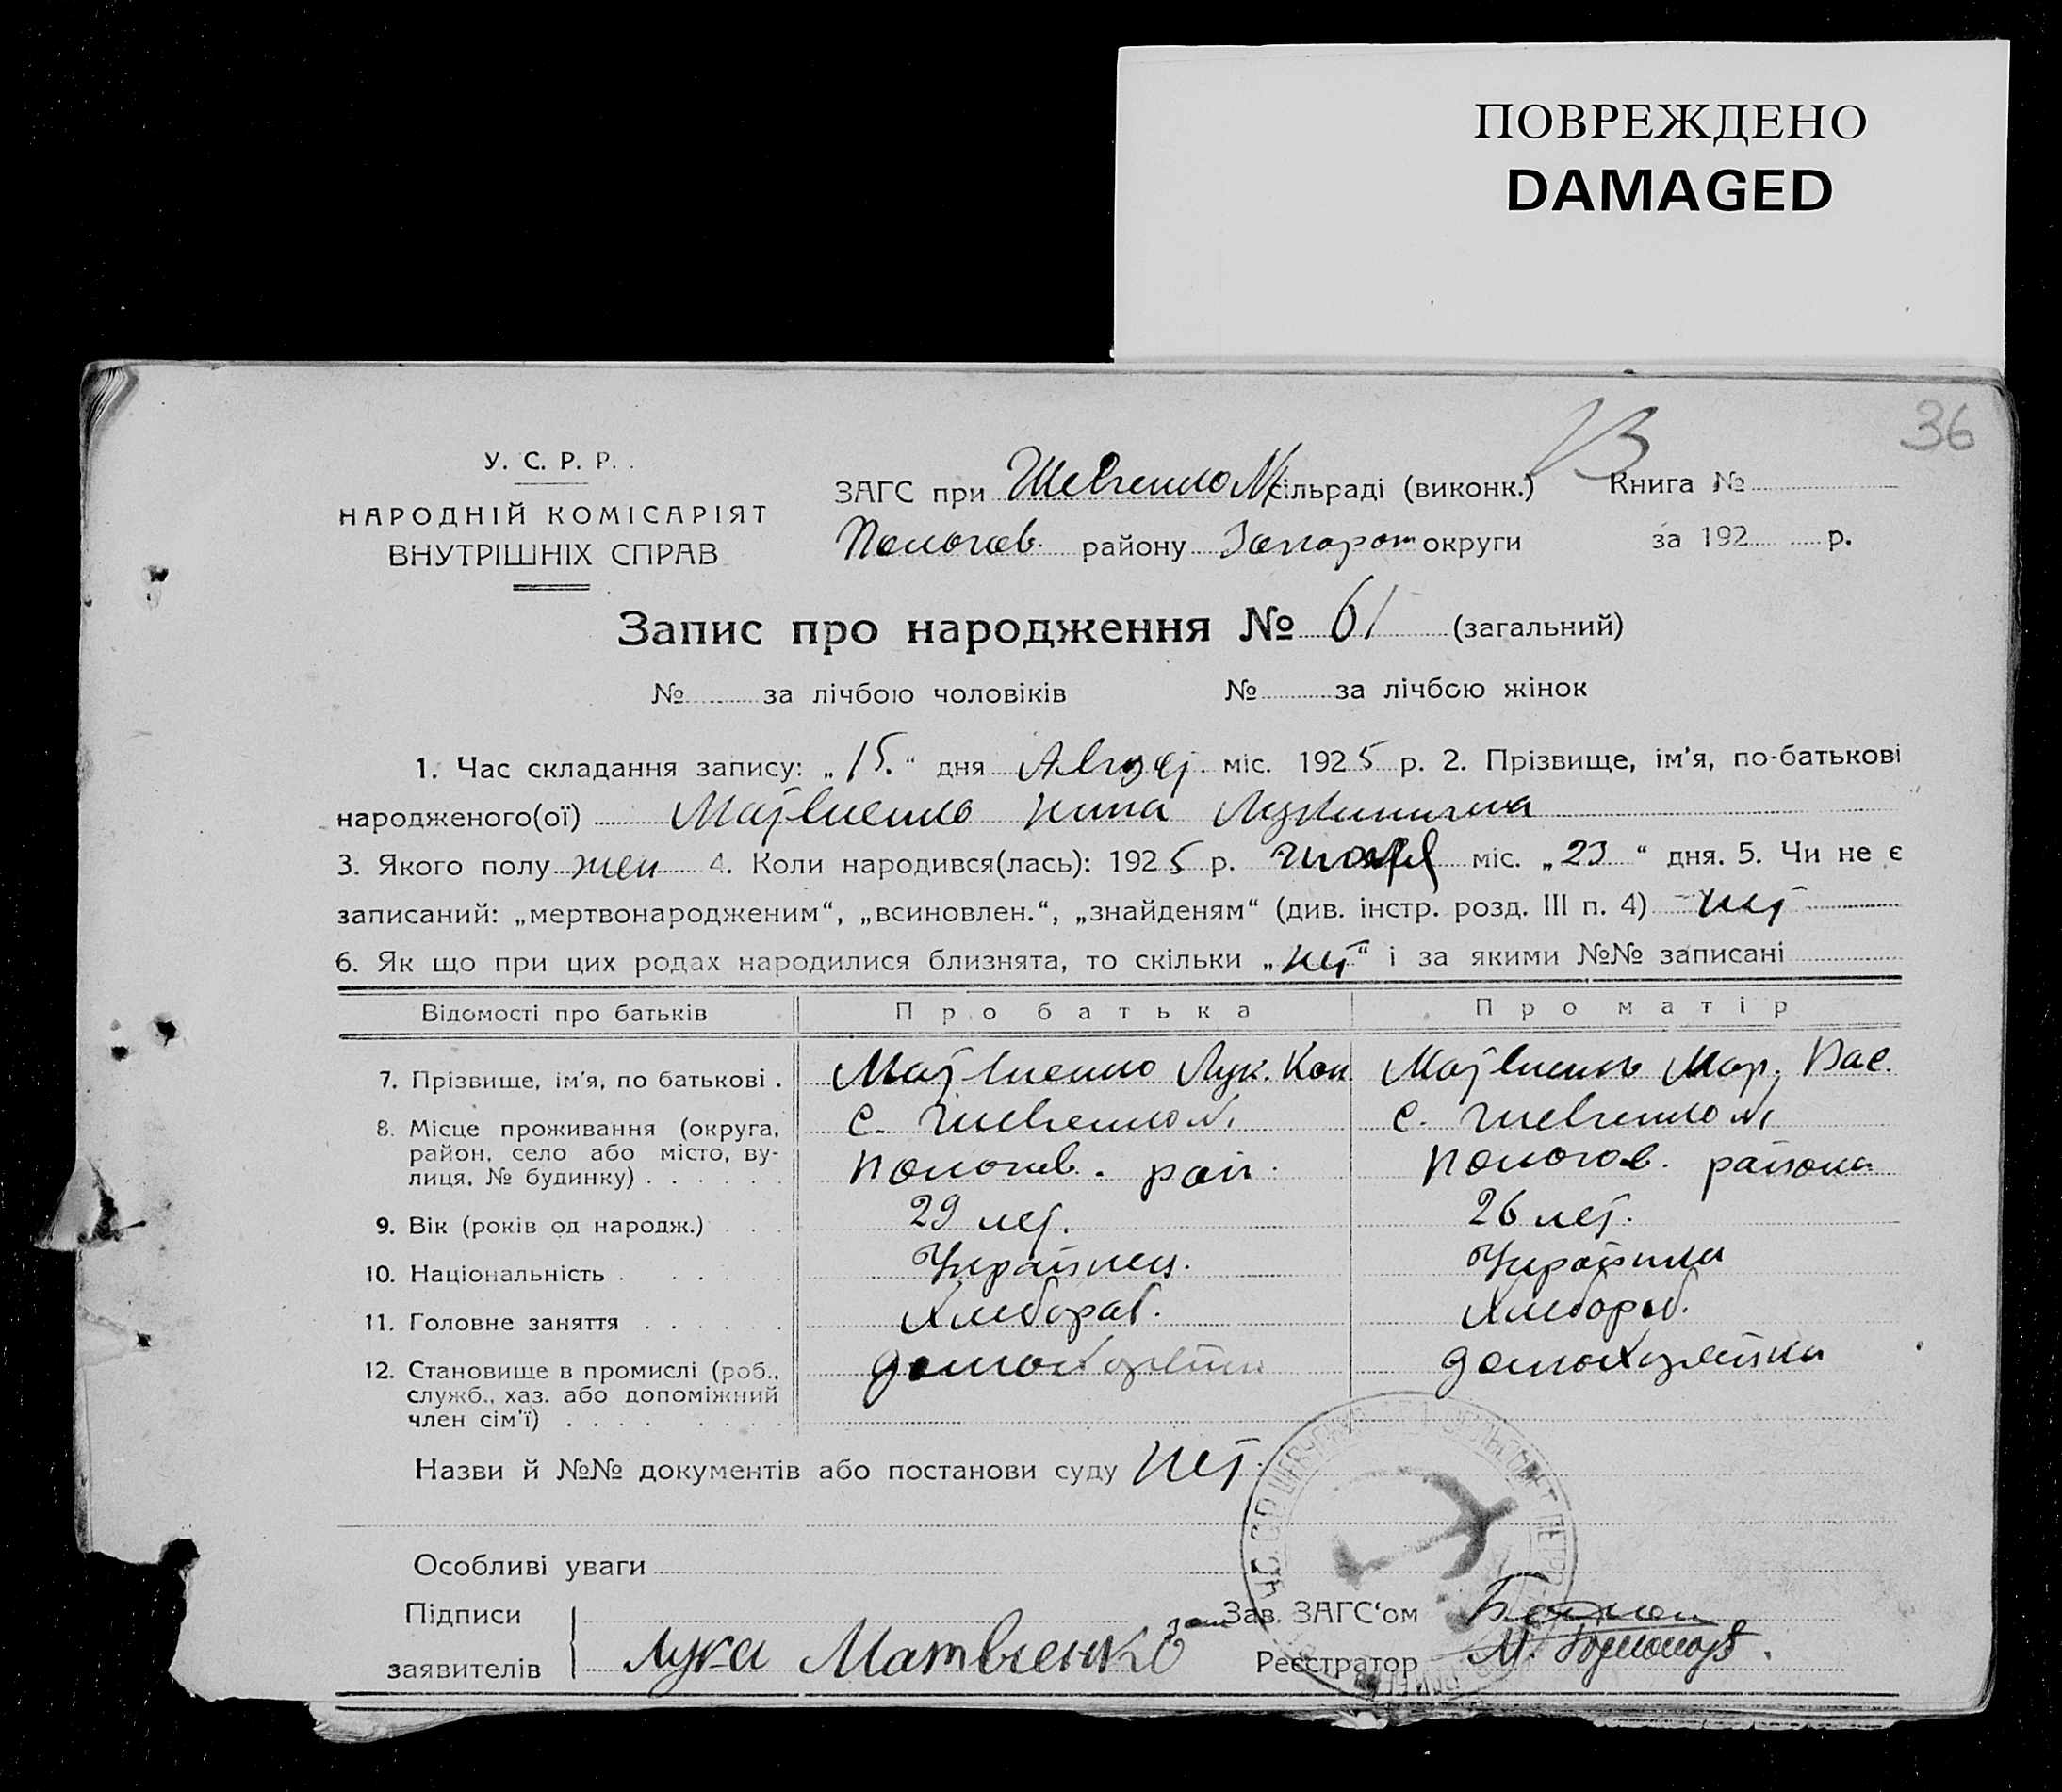 ПОВРЕЖДЕНО
DAMAGED
36
У. С. Р. Р.
НАРОДНІЙ КОМІСАРІЯТ
ВНУТРІШНІХ СПРАВ
ЗАГС при Шевченко №1 сільраді (виконк.) Книга №
Пологов. району Запорож округи за 192 р.
Запис про народження № 61 (загальний)
№ за лічбою чоловіків № за лічбою жінок
1. Час складання запису: „15.“ дня Август. міс. 1925 р. 2. Прізвище, ім'я, по-батькові
народженого(ої) Матвиенко Нина Лукинична
3. Якого полу жен 4. Коли народився(лась): 1925 р. міс. „23“ дня. 5. Чи не є
записаний: „мертвонародженим“, „всиновлен.“, „знайденям“ (див. інстр. розд. III п. 4) нет
6. Як що при цих родах народилися близнята, то скільки „нет“ і за якими №№ записані
Відомості про батьків Про батька Про матір
7. Прізвище, ім'я, по батькові . Матвиенко Лук. Кон Матвиенко Мар. Вас.
8. Місце проживання (округа, район, село або місто, вулиця, № будинку) с. Шевченко №1 с. Шевченко №1
Пологов. рай. Пологов. района
9. Вік (років од народж.) 29 лет. 26 лет.
10. Національність Украинец. Украинка
11. Головне заняття Хлебороб. Хлебороб.
12. Становище в промислі (роб., служб., хаз. або допоміжний член сім'ї) домохозяин домохозяйка
Назви й №№ документів або постанови суду нет.
Особливі уваги
Підписи Зав. ЗАГС'ом
заявителів Лука Матвиенко Реєстратор